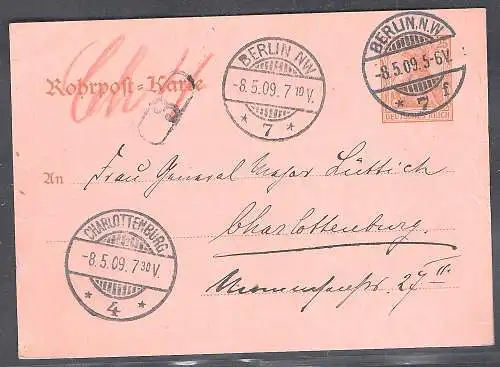 BERLIN, N.W.
-8.5.09.5-6V.
* 7 f
BERLIN NW
-8.5.09.7 10V.
* 7 *
DEUTSCHES REICH
Rohrpost-Karte
An Frau General Major Lüttich
Charlottenburg.
27 III.
CHARLOTTENBURG
-8.5.09.7 30V.
* 4 *